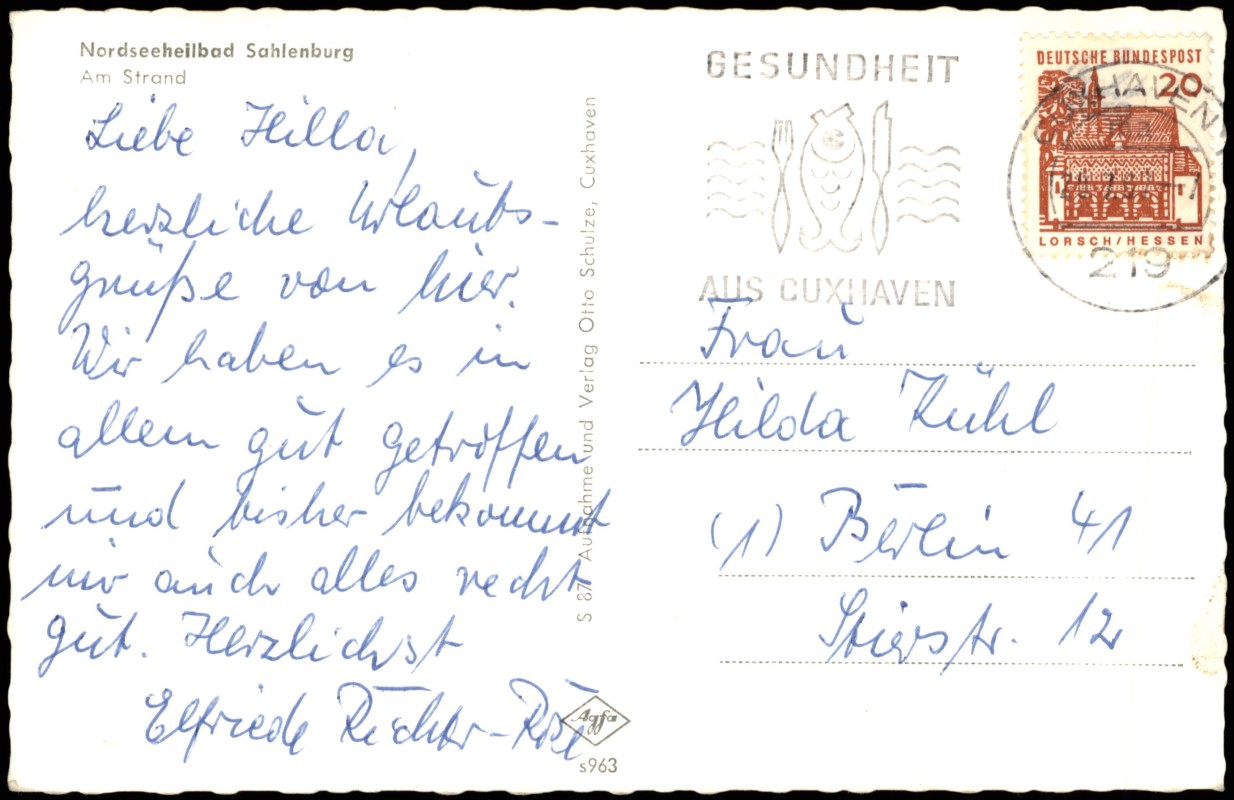 Nordseeheilbad Sahlenburg
Am Strand
Liebe Hilla,
herzliche Urlaubs-
grüße von hier.
Wir haben es in
allem gut getroffen
und bisher bekommt
mir auch alles recht
gut. Herzlichst
Elfriede Richter-Röse
S 87 Aufnahme und Verlag Otto Schulze, Cuxhaven
Agfa
s963
GESUNDHEIT
AUS CUXHAVEN
DEUTSCHE BUNDESPOST
20
LORSCH/HESSEN
219
Frau
Hilda Kühl
(1) Berlin 41
Stierstr. 12